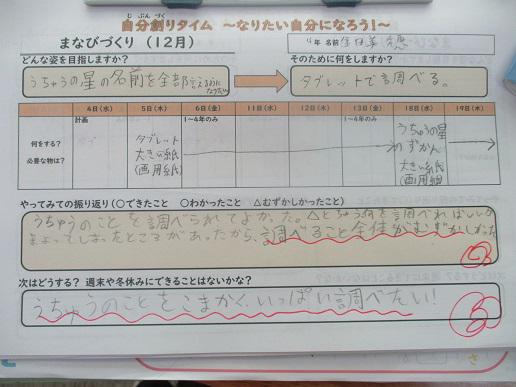 じ ぶん づく
自分創りタイム ～なりたい自分になろう！～
まなびづくり （12月）
4年 名前
どんな姿を目指しますか？
そのために何をしますか？
うちゅうの星の名前を全部言えるように
なりたい
タブレットで調べる。
4日(水) 5日(木) 6日(金) 11日(水) 12日(木) 13日(金) 18日(水) 19日(木)
計画
1～4年のみ
1～4年のみ
何をする？
必要な物は？
タブレット
大きい紙
(画用紙)
うちゅうの星
ずかん
大きい紙
(画用紙)
やってみての振り返り（○できたこと ○わかったこと △むずかしかったこと）
うちゅうのことを調べられてよかった。△とちゅう何を調べればいいか
まよってしまったところがあったから、調べること全体がむずかしかった
次はどうする？ 週末や冬休みにできることはないかな？
うちゅうのことをこまかく、いっぱい調べたい！